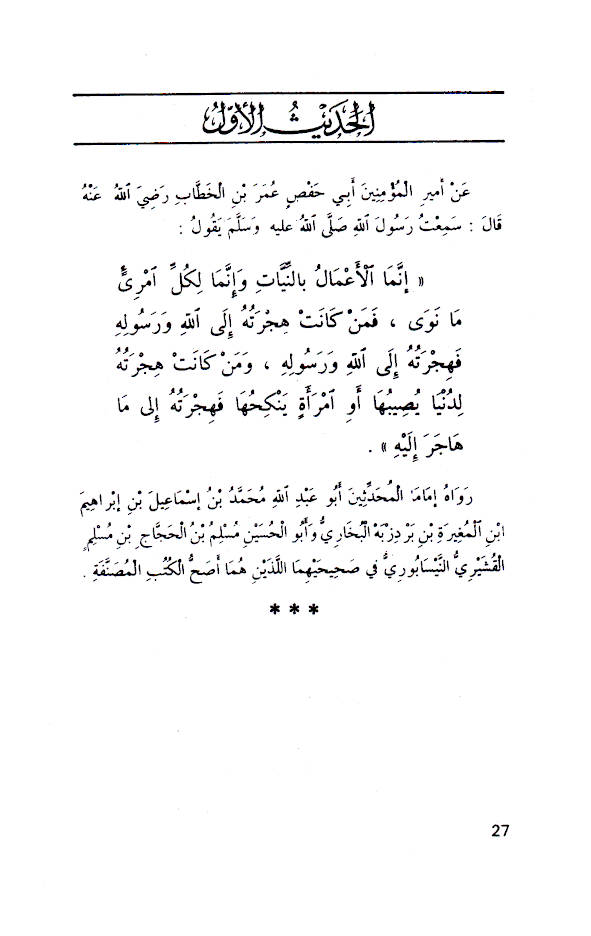 الحَدِيْثُ الأَوّلُ
عَنْ أميرِ المُؤْمِنِينَ أَبِي حَفْصٍ عُمَرَ بْنِ الخَطَّابِ رَضِيَ ٱللهُ عَنْهُ
قَالَ : سَمِعْتُ رَسُولَ ٱللهِ صَلَّى ٱللهُ عليه وَسَلَّمَ يَقُولُ :
« إنَّمَا ٱلْأَعْمَالُ بالنِّيَّاتِ وَإِنَّمَا لِكُلِّ ٱمْرِئٍ
مَا نَوَى ، فَمَنْ كَانَتْ هِجْرَتُهُ إِلَى ٱللهِ وَرَسُولِهِ
فَهِجْرَتُهُ إِلَى ٱللهِ وَرَسُولِهِ ، وَمَنْ كَانَتْ هِجْرَتُهُ
لِدُنْيَا يُصِيبُهَا أَوِ ٱمْرَأَةٍ يَنْكِحُهَا فَهِجْرَتُهُ إلى مَا
هَاجَرَ إِلَيْهِ » .
رَوَاهُ إمَامَا المُحَدِّثِينَ أَبُو عَبْدِ اللهِ مُحَمَّدُ بْنُ إسْمَاعِيلَ بْنِ إبْرَاهِيمَ
ابْنِ ٱلمُغِيرَةِ بْنِ بَرْدِزبَهْ الْبُخَارِيُّ وَأَبُو الْحُسَيْنِ مُسْلِمُ بْنُ الْحَجَّاجِ بْنِ مُسْلِمٍ
القُشَيْرِيُّ النَّيْسَابُورِيُّ في صَحِيحَيْهِمَا اللَّذَيْنِ هُمَا أَصَحُّ الْكُتُبِ الْمُصَنَّفَةِ .
* * *
27